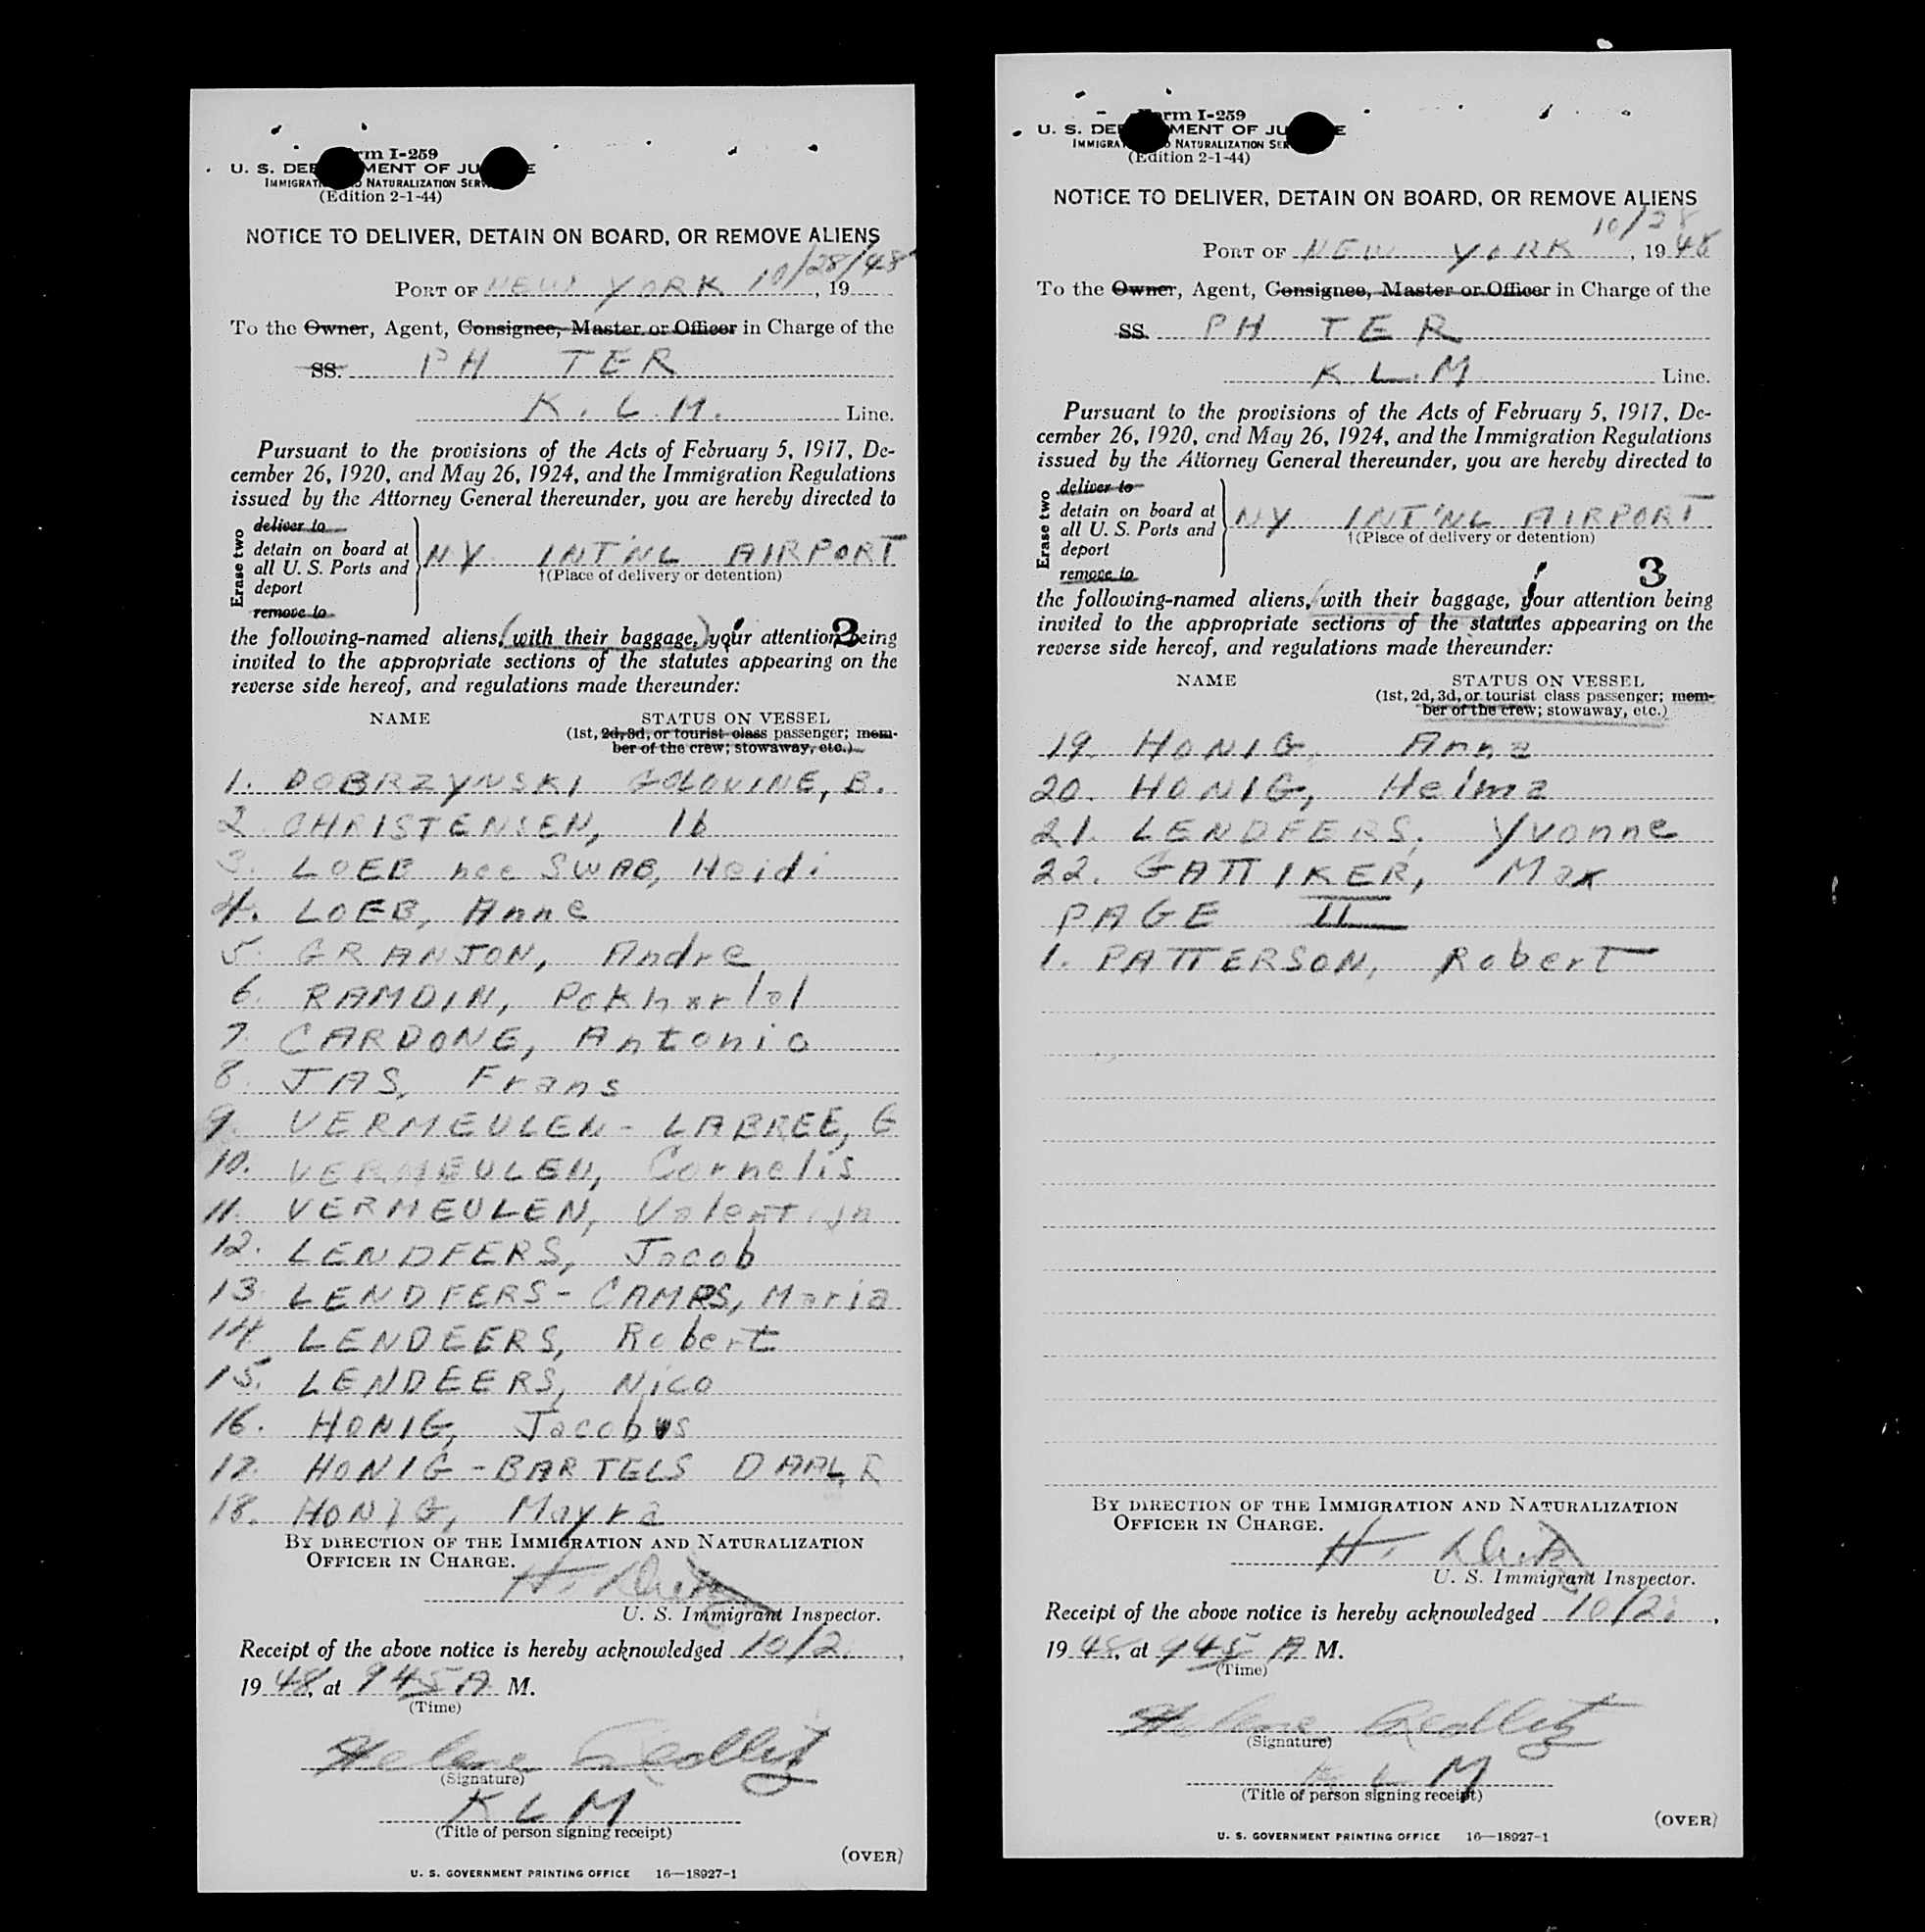 Form I-259
U. S. DEPARTMENT OF JUSTICE
IMMIGRATION AND NATURALIZATION SERVICE
(Edition 2-1-44)
NOTICE TO DELIVER, DETAIN ON BOARD, OR REMOVE ALIENS
PORT OF NEW YORK 10/28/48, 19
To the Owner, Agent, Consignee, Master or Officer in Charge of the
SS. PH TER
K. L. M. Line.
Pursuant to the provisions of the Acts of February 5, 1917, De-
cember 26, 1920, and May 26, 1924, and the Immigration Regulations
issued by the Attorney General thereunder, you are hereby directed to
Erase two
deliver to
detain on board at
all U. S. Ports and
deport
remove to
NY INT'NL AIRPORT
†(Place of delivery or detention)
3
the following-named aliens, (with their baggage,) your attention being
invited to the appropriate sections of the statutes appearing on the
reverse side hereof, and regulations made thereunder:
NAME STATUS ON VESSEL
(1st, 2d, 3d, or tourist class passenger; mem-
ber of the crew; stowaway, etc.)
1. DOBRZYNSKI GOLOVINE, B.
2. CHRISTENSEN, Ib
3. LOEB nee SWAB, Heidi
4. LOEB, Anne
5. GRANJON, Andre
6. RAMDIN, Pokharlal
7. CARDONE, Antonio
8. JAS, Frans
9. VERMEULEN - LABREE, G
10. VERMEULEN, Cornelis
11. VERMEULEN, Valentijn
12. LENDFERS, Jacob
13. LENDFERS - CAMPS, Maria
14. LENDEERS, Robert
15. LENDEERS, Nico
16. HONIG, Jacobus
17. HONIG - BARTELS DAAL, R
18. HONIG, Mayra
BY DIRECTION OF THE IMMIGRATION AND NATURALIZATION
OFFICER IN CHARGE.
H.
U. S. Immigrant Inspector.
Receipt of the above notice is hereby acknowledged 10/2,
19 48, at 945 A M.
(Time)
Helene
(Signature)
KLM
(Title of person signing receipt)
(OVER)
U. S. GOVERNMENT PRINTING OFFICE 16—18927-1
Form I-259
U. S. DEPARTMENT OF JUSTICE
IMMIGRATION AND NATURALIZATION SERVICE
(Edition 2-1-44)
NOTICE TO DELIVER, DETAIN ON BOARD, OR REMOVE ALIENS
10/28
PORT OF NEW YORK, 19 48
To the Owner, Agent, Consignee, Master or Officer in Charge of the
SS. PH TER
K. L. M Line.
Pursuant to the provisions of the Acts of February 5, 1917, De-
cember 26, 1920, and May 26, 1924, and the Immigration Regulations
issued by the Attorney General thereunder, you are hereby directed to
Erase two
deliver to
detain on board at
all U. S. Ports and
deport
remove to
NY INT'NL AIRPORT
†(Place of delivery or detention)
3
the following-named aliens, with their baggage, your attention being
invited to the appropriate sections of the statutes appearing on the
reverse side hereof, and regulations made thereunder:
NAME STATUS ON VESSEL
(1st, 2d, 3d, or tourist class passenger; mem-
ber of the crew; stowaway, etc.)
19. HONIG, Anna
20. HONIG, Helma
21. LENDFERS, Yvonne
22. GATTIKER, Max
PAGE II
1. PATTERSON, Robert
BY DIRECTION OF THE IMMIGRATION AND NATURALIZATION
OFFICER IN CHARGE.
H.
U. S. Immigrant Inspector.
Receipt of the above notice is hereby acknowledged 10/2,
19 48, at 945 A M.
(Time)
Helene
(Signature)
KLM
(Title of person signing receipt)
(OVER)
U. S. GOVERNMENT PRINTING OFFICE 16—18927-1